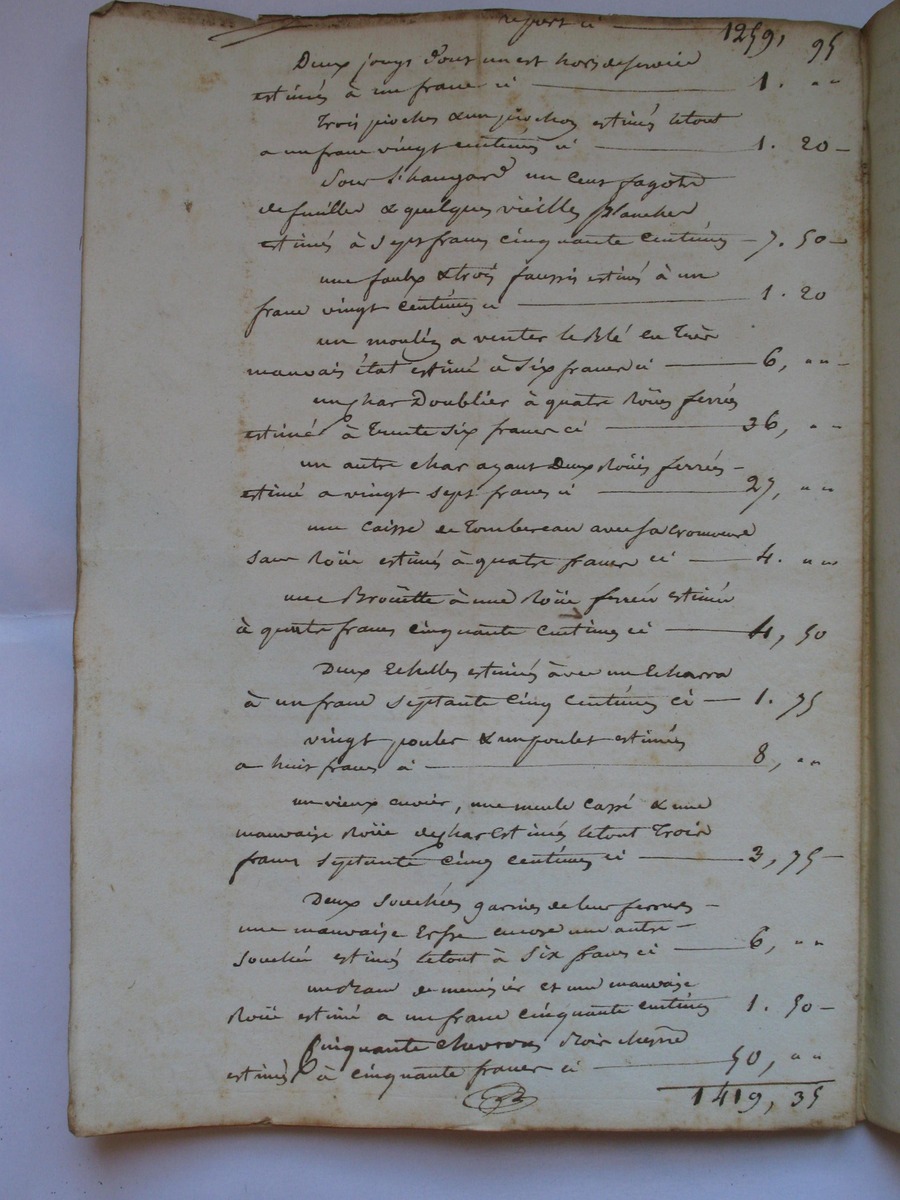 report ci 1259, 95
Deux jougs d'out un est hors de service
estimés à un franc ci 1. " "
Trois pioches & un piochon estimés letout
a un franc vingt centimes ci 1. 20
Sous l'hangard un Cent fagots
defeuilles & quelques vieilles planches
estimés à sept francs cinquante centimes 7. 50
une faulx & trois faussis estimés à un
franc vingt centimes ci 1. 20
un moulin a venter le Blé en Très
mauvais état estimé à Six francs ci 6, " "
un char Doublier à quatre Roües ferrées
estimé à Trente six francs ci 36, " "
un autre char ayant Deux Roües ferrées
estimé a vingt sept francs ci 27, " "
une Caisse de Tombereau avec sa
sans Roüe estimés à quatre francs ci 4. " "
une Broüette à une Roüe ferrée estimée
à quatre francs cinquante centimes ci 4, 50
Deux Echelles estimés avec un Echarra
à un franc septante cinq centimes ci 1. 75
vingt poules & un poulet estimés
a huit francs ci 8, " "
un vieux cuvier, une meule Cassé & une
mauvaise Roüe de char estimés letout Trois
francs septante cinq centimes ci 3, 75
Deux garnies de leur ferrures
une mauvaise encore une autre
estimés letout à Six francs ci 6, " "
un de menusier et une mauvaise
Roüe estimé a un franc cinquante centimes 1. 50
Cinquante chevrons Bois chesne
estimés à cinquante francs ci 50, " "
1419, 35